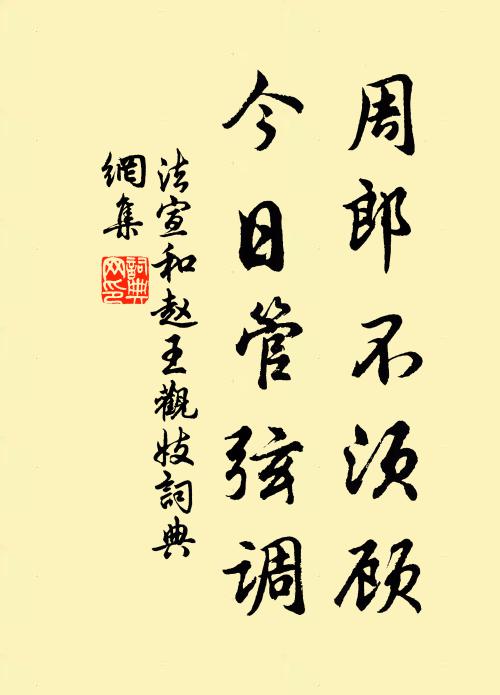 周郎不须顾
今日管弦调
法宣和赵王觀妓詞典
網集
詞典
网印